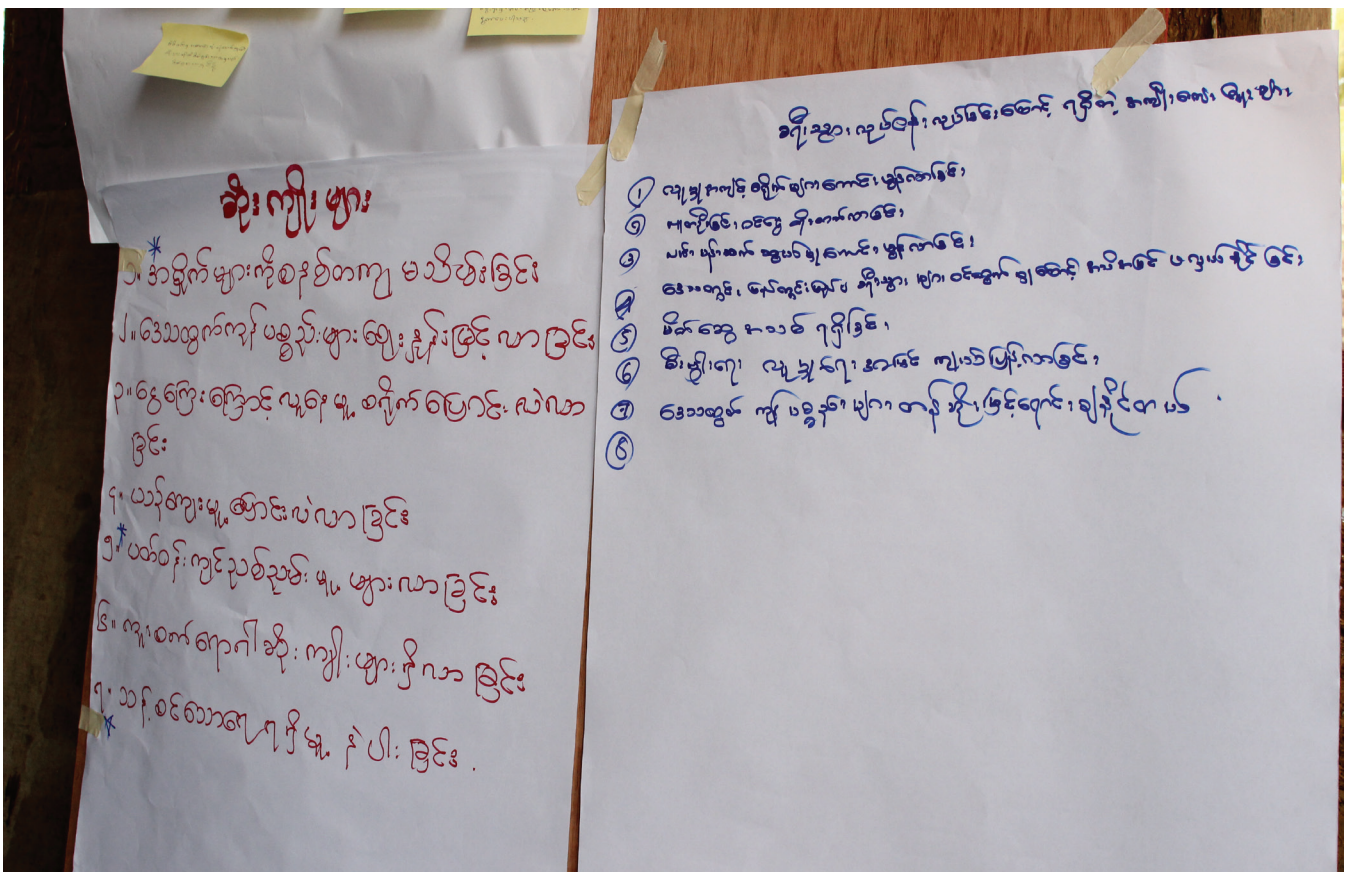 ဆိုးကျိုးများ
၁. အမှိုက်များကိုစနစ်တကျ မသိမ်းခြင်း
၂။ ဒေသထွက်ကုန်ပစ္စည်းများဈေးနှုန်းမြင့်လာခြင်း
၃။ ငွေကြေးကြောင့်လူနေမှု့ စရိုက်ပြောင်းလဲလာ
ခြင်း
၄. ယဉ်ကျေးမှု့ပြောင်းလဲလာခြင်း
၅. ပတ်ဝန်းကျင်ညစ်ညမ်းမှု့ များလာခြင်း
၆။ ကူးစက်ရောဂါဆိုးကျိုးများရှိလာခြင်း
၇. သန့်စင်သောရေရရှိမှု့ နဲပါးခြင်း.
ခရီးသွားလုပ်ငန်းလုပ်ခြင်းကြောင့် ရရှိတဲ့ အကျိုးကျေးဇူးများ
① လူမှုအကျင့်စရိုက်များကောင်းမွန်လာခြင်း
② ဝင်ငွေ တိုးတက်လာခြင်း
③ လမ်းပန်းဆက်သွယ်မှုကောင်းမွန်လာခြင်း
④ ခရီးသွားများ ဝင်ထွက်မှုကြောင့် အသိအမြင် ဖလှယ်နိုင်ခြင်း
⑤ မိတ်ဆွေအသစ်ရရှိခြင်း
⑥ စီးပွါးရေး လူမှုရေး အမြင် ကျယ်ပြန့်လာခြင်း
⑦ ဒေသထွက် ကုန်ပစ္စည်းများ တန်ဘိုးမြင့်ရောင်းချနိုင်တယ်
⑧